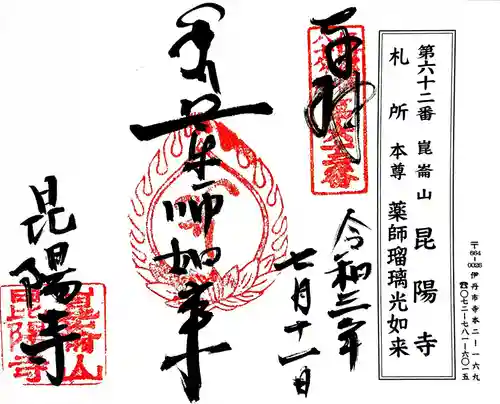 第六十二番 崑崙山 昆陽寺
札所本尊 薬師瑠璃光如来
〒664-0026 伊丹市寺本二-一六九
☎〇七二-七八一-六〇一五
奉拝
令和三年
七月十一日
薬師如来
昆陽寺
崑崙山
昆陽寺